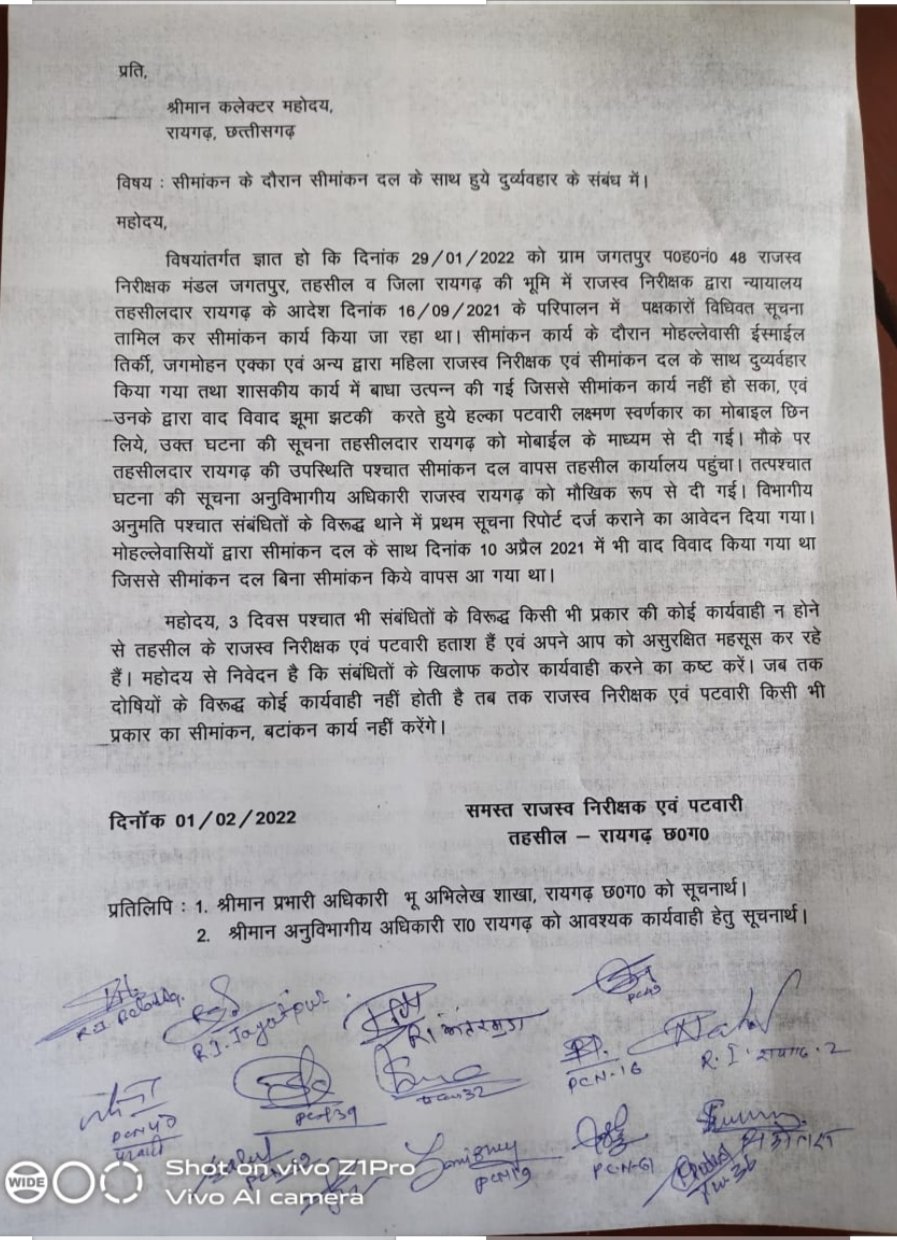 प्रति,
श्रीमान कलेक्टर महोदय,
रायगढ़, छत्तीसगढ़
विषय : सीमांकन के दौरान सीमांकन दल के साथ हुये दुर्व्यवहार के संबंध में।
महोदय,
विषयांतर्गत ज्ञात हो कि दिनांक 29/01/2022 को ग्राम जगतपुर प0ह0नं0 48 राजस्व
निरीक्षक मंडल जगतपुर, तहसील व जिला रायगढ़ की भूमि में राजस्व निरीक्षक द्वारा न्यायालय
तहसीलदार रायगढ़ के आदेश दिनांक 16/09/2021 के परिपालन में पक्षकारों विधिवत सूचना
तामिल कर सीमांकन कार्य किया जा रहा था। सीमांकन कार्य के दौरान मोहल्लेवासी ईस्माईल
तिर्की, जगमोहन एक्का एवं अन्य द्वारा महिला राजस्व निरीक्षक एवं सीमांकन दल के साथ दुव्यर्वहार
किया गया तथा शासकीय कार्य में बाधा उत्पन्न की गई जिससे सीमांकन कार्य नहीं हो सका, एवं
उनके द्वारा वाद विवाद झूमा झटकी करते हुये हल्का पटवारी लक्ष्मण स्वर्णकार का मोबाइल छिन
लिये, उक्त घटना की सूचना तहसीलदार रायगढ़ को मोबाईल के माध्यम से दी गई। मौके पर
तहसीलदार रायगढ़ की उपस्थिति पश्चात सीमांकन दल वापस तहसील कार्यालय पहुंचा। तत्पश्चात
घटना की सूचना अनुविभागीय अधिकारी राजस्व रायगढ़ को मौखिक रूप से दी गई। विभागीय
अनुमति पश्चात संबंधितों के विरूद्ध थाने में प्रथम सूचना रिपोर्ट दर्ज कराने का आवेदन दिया गया।
मोहल्लेवासियों द्वारा सीमांकन दल के साथ दिनांक 10 अप्रैल 2021 में भी वाद विवाद किया गया था
जिससे सीमांकन दल बिना सीमांकन किये वापस आ गया था।
महोदय, 3 दिवस पश्चात भी संबंधितों के विरूद्ध किसी भी प्रकार की कोई कार्यवाही न होने
से तहसील के राजस्व निरीक्षक एवं पटवारी हताश हैं एवं अपने आप को असुरक्षित महसूस कर रहे
हैं। महोदय से निवेदन है कि संबंधितों के खिलाफ कठोर कार्यवाही करने का कष्ट करें। जब तक
दोषियों के विरूद्ध कोई कार्यवाही नहीं होती है तब तक राजस्व निरीक्षक एवं पटवारी किसी भी
प्रकार का सीमांकन, बटांकन कार्य नहीं करेंगे।
दिनॉक 01/02/2022
समस्त राजस्व निरीक्षक एवं पटवारी
तहसील – रायगढ़ छ0ग0
प्रतिलिपि : 1. श्रीमान प्रभारी अधिकारी भू अभिलेख शाखा, रायगढ़ छ0ग0 को सूचनार्थ।
2. श्रीमान अनुविभागीय अधिकारी रा0 रायगढ़ को आवश्यक कार्यवाही हेतु सूचनार्थ।
R.I. Jagatpur
RI
PCN-16
R.I. रायगढ़-2
PCN 39
PCN 32
PCN 40
PCN 19
PCN-61
WIDE
Shot on vivo Z1Pro
Vivo AI camera